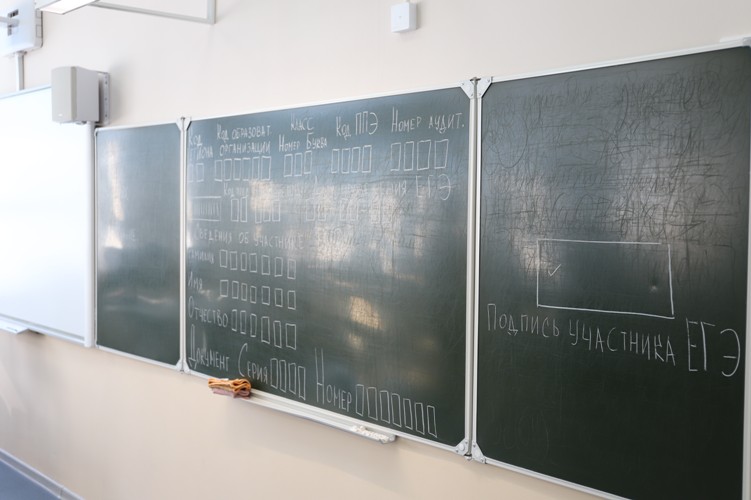 Код Код образоват. Класс Код ППЭ Номер аудит.
организации Номер Буква
ЕГЭ
Сведения об участнике
Имя
Отчество
Документ Серия Номер
Подпись участника ЕГЭ